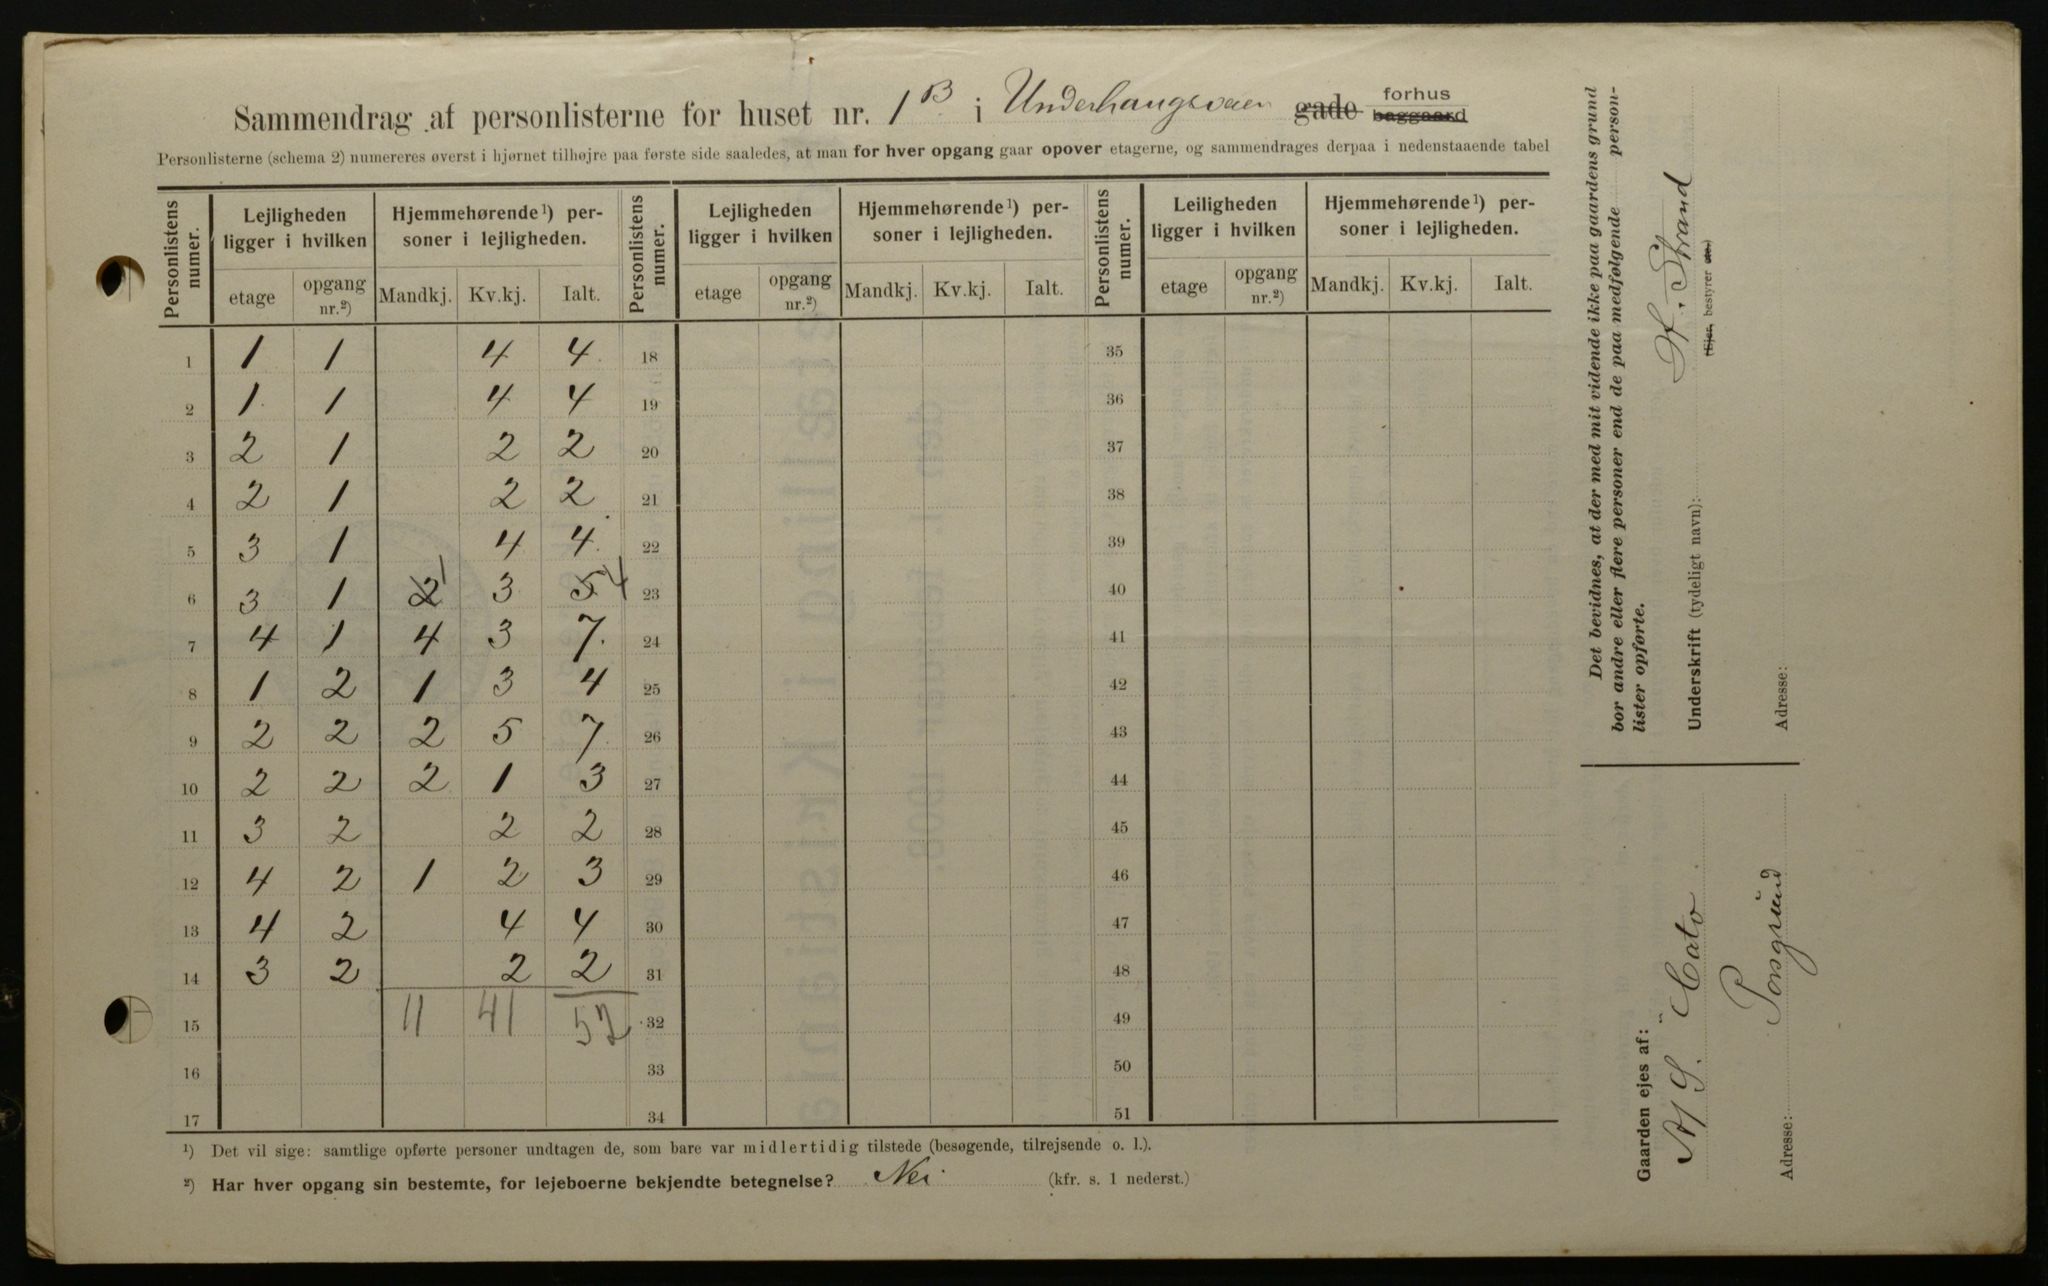 Sammendrag af personlisterne for huset nr. 1B i Underhaugsveien gade forhus baggaard
Personlisterne (schema 2) numereres øverst i hjørnet tilhøjre paa første side saaledes, at man for hver opgang gaar opover etagerne, og sammendrages derpaa i nedenstaaende tabel
Personlistens numer. Lejligheden ligger i hvilken Hjemmehørende ¹) personer i lejligheden. Personlistens numer. Lejligheden ligger i hvilken Hjemmehørende ¹) personer i lejligheden. Personlistens numer. Leiligheden ligger i hvilken Hjemmehørende ¹) personer i lejligheden.
etage opgang nr.²) Mandkj. Kv.kj. Ialt. etage opgang nr.²) Mandkj. Kv.kj. Ialt. etage opgang nr.²) Mandkj. Kv.kj. Ialt.
1 1 1 4 4 18 35
2 1 1 4 4 19 36
3 2 1 2 2 20 37
4 2 1 2 2 21 38
5 3 1 4 4 22 39
6 3 1 2 1 3 5 4 23 40
7 4 1 4 3 7 24 41
8 1 2 1 3 4 25 42
9 2 2 2 5 7 26 43
10 2 2 2 1 3 27 44
11 3 2 2 2 28 45
12 4 2 1 2 3 29 46
13 4 2 4 4 30 47
14 3 2 2 2 31 48
15 11 41 52 32 49
16 33 50
17 34 51
¹) Det vil sige: samtlige opførte personer undtagen de, som bare var midlertidig tilstede (besøgende, tilrejsende o. l.).
²) Har hver opgang sin bestemte, for lejeboerne bekjendte betegnelse? Nei (kfr. s. 1 nederst.)
Det bevidnes, at der med mit vidende ikke paa gaardens grund
bor andre eller flere personer end de paa medfølgende personlister opførte.
Underskrift (tydeligt navn): Strand
(Ejer, bestyrer etc.)
Adresse:
Gaarden ejes af:
A/S. "Cato"
Adresse: Porsgrund